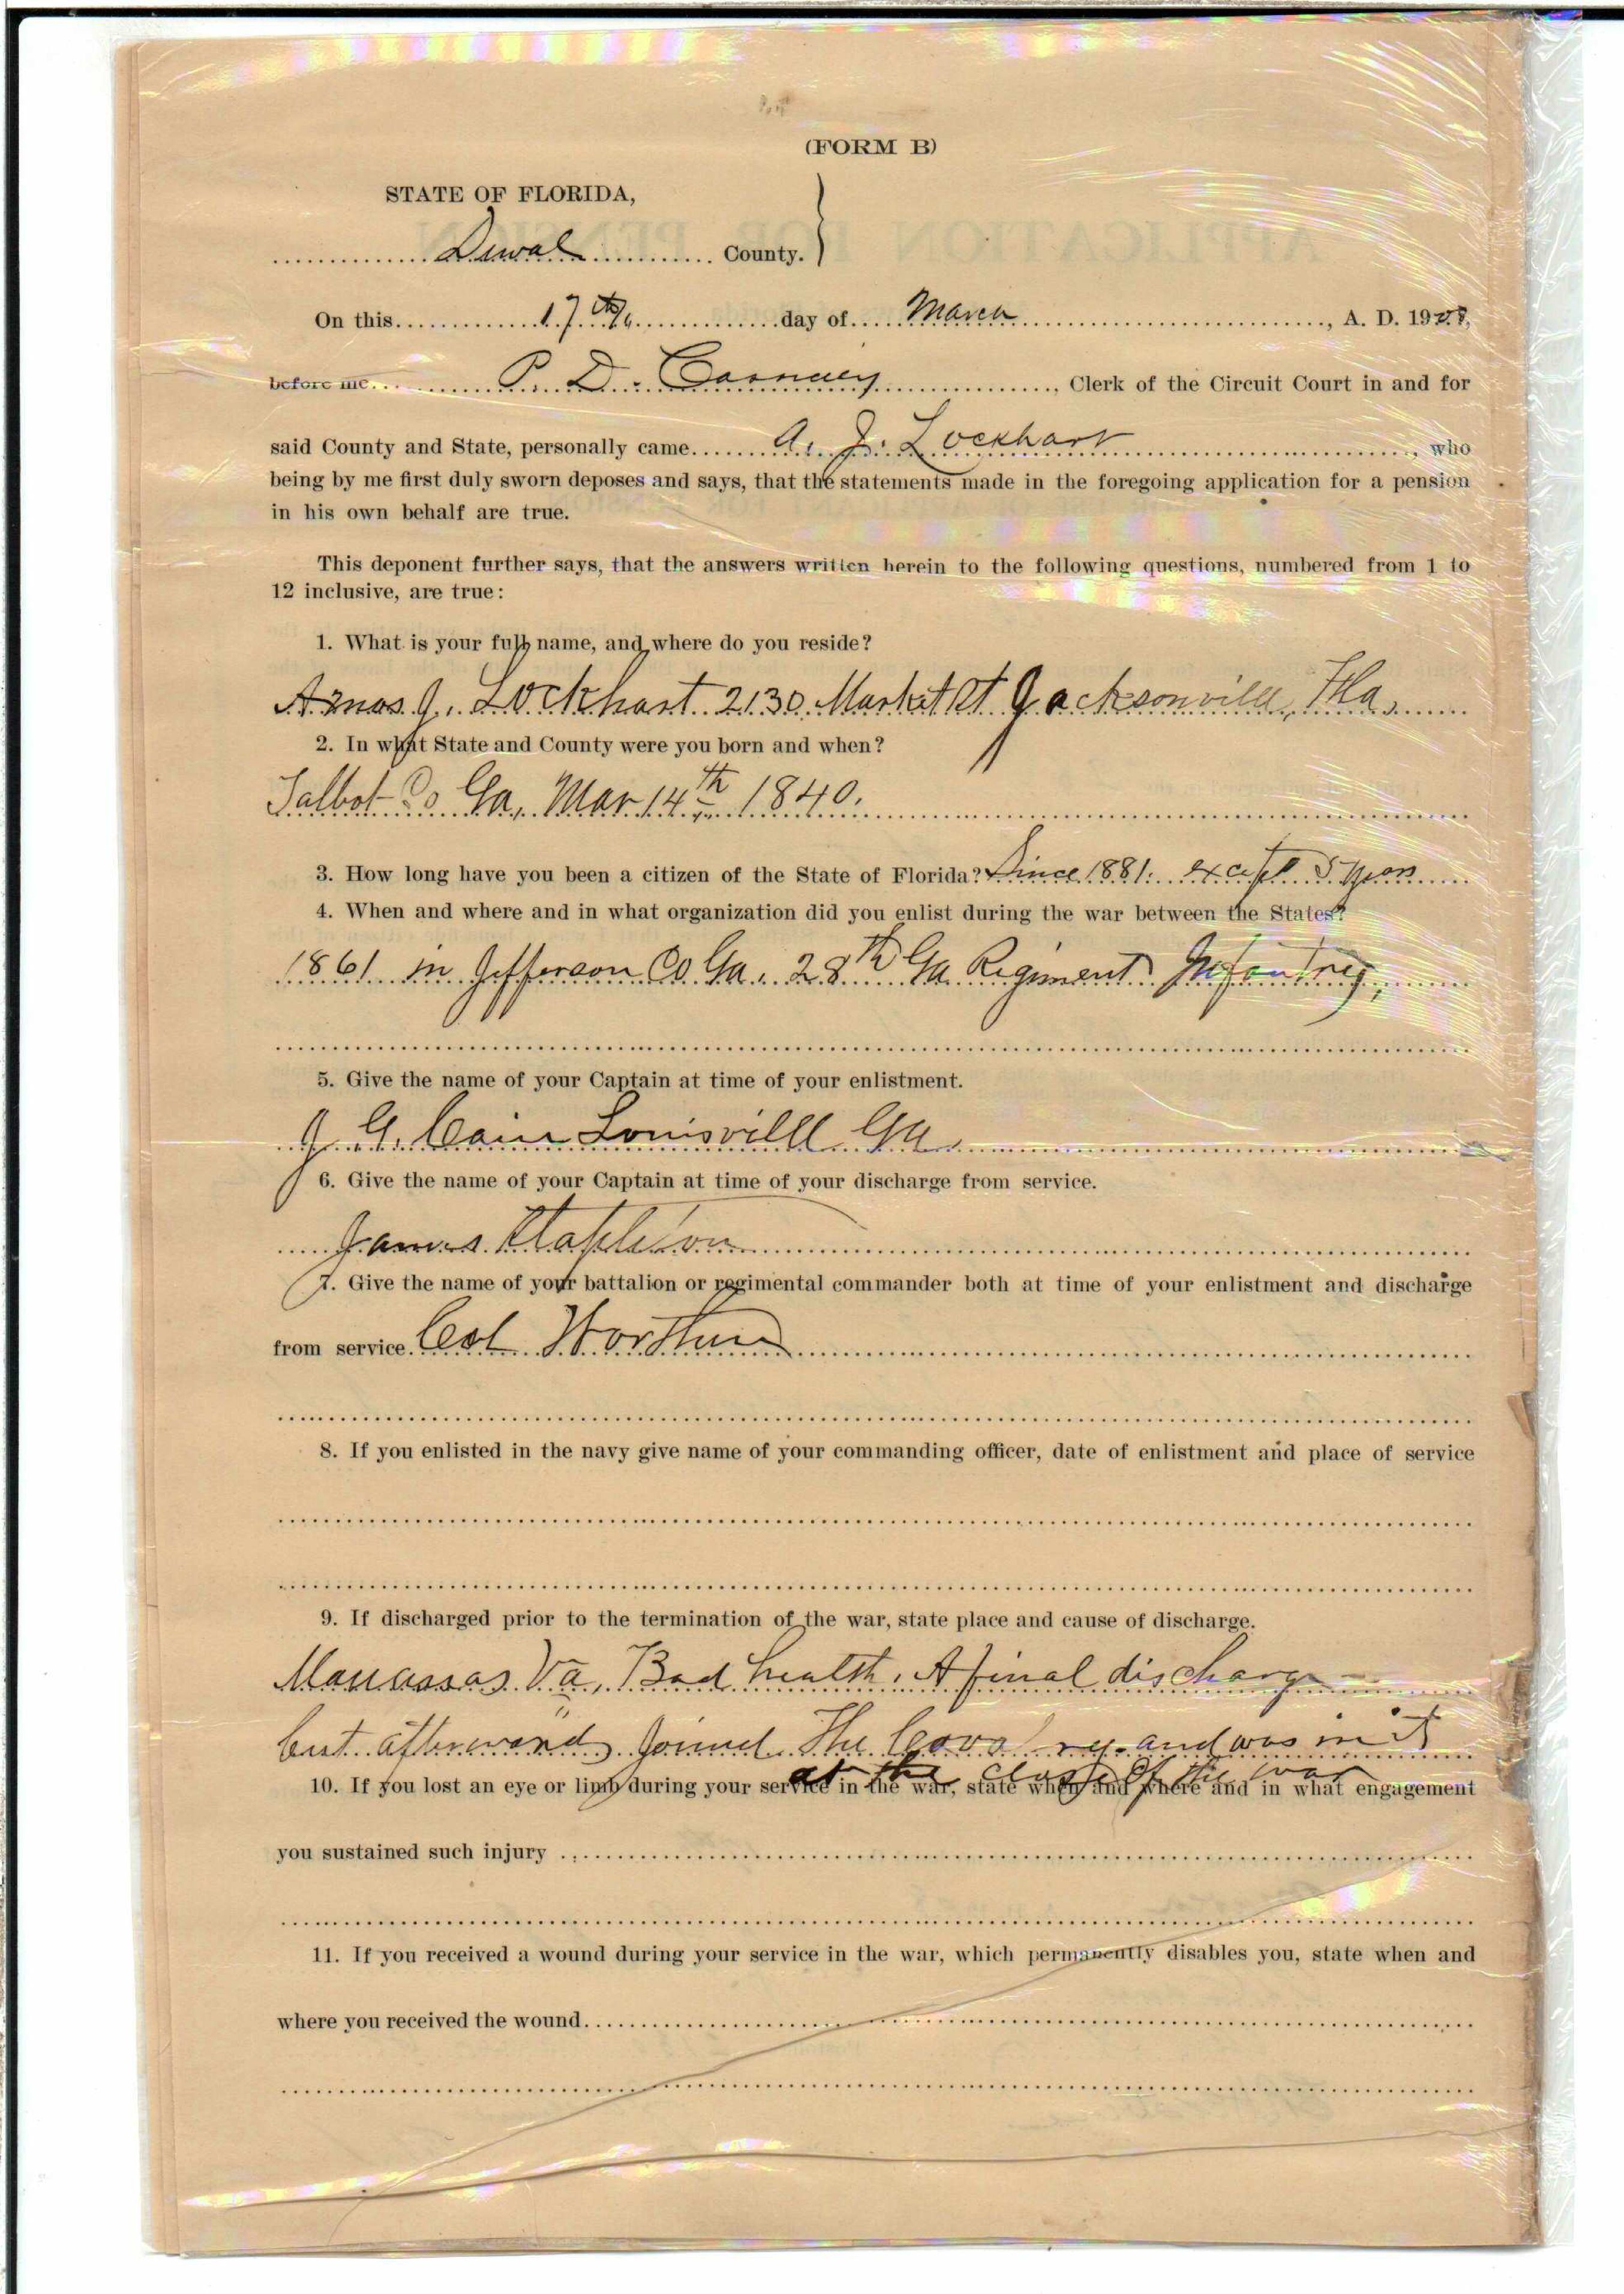 (FORM B)
STATE OF FLORIDA,
Duval County.
On this 17th day of March, A. D. 1908,
before me P. D. , Clerk of the Circuit Court in and for
said County and State, personally came A. J. Lockhart, who
being by me first duly sworn deposes and says, that the statements made in the foregoing application for a pension
in his own behalf are true.
This deponent further says, that the answers written herein to the following questions, numbered from 1 to
12 inclusive, are true:
1. What is your full name, and where do you reside?
Amos J. Lockhart 2130 Market St Jacksonville, Fla,
2. In what State and County were you born and when?
Talbot Co Ga, Mar 14th 1840.
3. How long have you been a citizen of the State of Florida? Since 1881. except 5 years
4. When and where and in what organization did you enlist during the war between the States?
1861 in Jefferson Co Ga. 28th Ga Regiment Infantry,
5. Give the name of your Captain at time of your enlistment.
J. G. Cain Louisville Ga.
6. Give the name of your Captain at time of your discharge from service.
James Stapleton
7. Give the name of your battalion or regimental commander both at time of your enlistment and discharge
from service Col Worthen
8. If you enlisted in the navy give name of your commanding officer, date of enlistment and place of service
9. If discharged prior to the termination of the war, state place and cause of discharge.
Manassas Va, Bad health. A final discharge
but afterward joined The Cavalry and was in it
at the close of the war
10. If you lost an eye or limb during your service in the war, state when and where and in what engagement
you sustained such injury
11. If you received a wound during your service in the war, which permanently disables you, state when and
where you received the wound